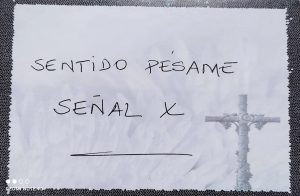 SENTIDO PÉSAME
SEÑAL X